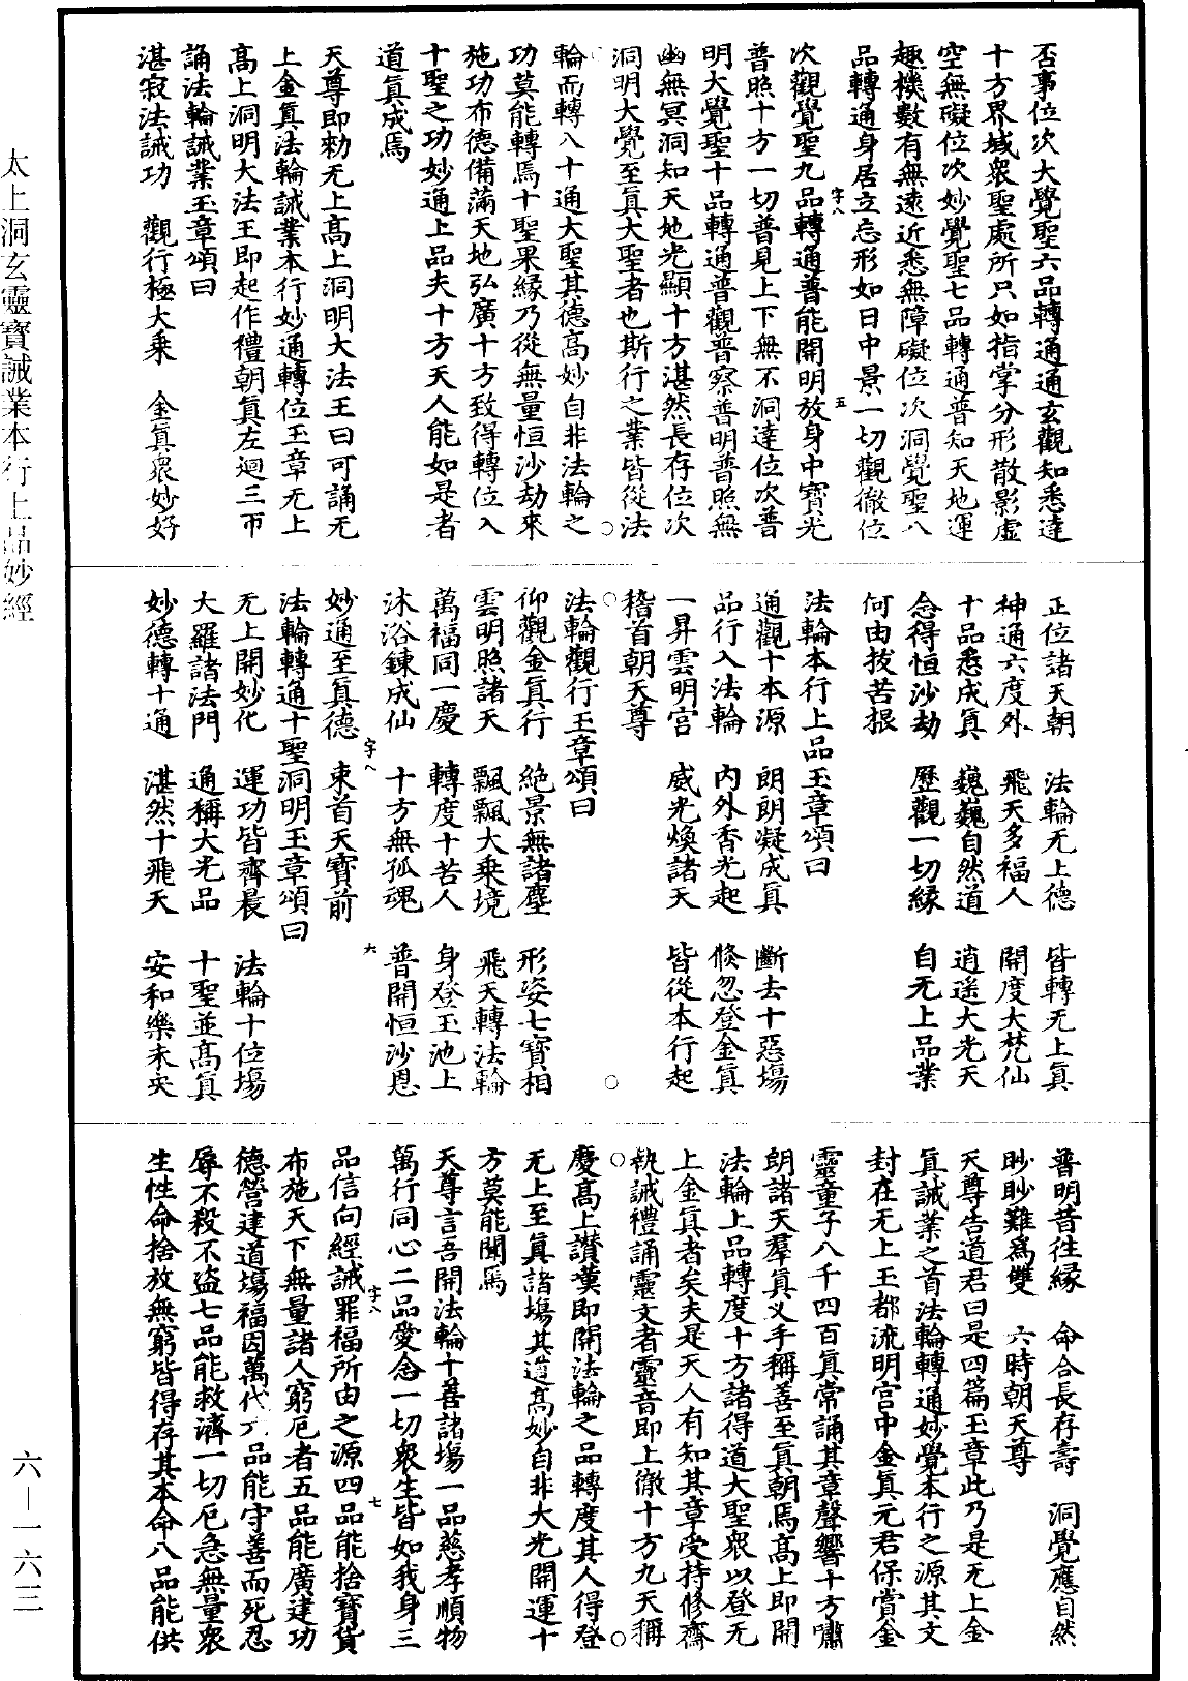 否事位次大覺聖六品轉通通玄觀知悉達
十方界域衆聖處所只如指掌分形散影虛
空無礙位次妙覺聖七品轉通普知天地運
趣機數有無遠近悉無障礙位次洞覺聖八
品轉通身居立忘形如日中景一切觀徹位
字八 五
次觀覺聖九品轉通普能開明放身中寶光
普照十方一切普見上下無不洞達位次普
明大覺聖十品轉通普觀普察普明普照無
幽無冥洞知天地光顯十方湛然長存位次
洞明大覺至眞大聖者也斯行之業皆從法
輪而轉入十通大聖其德高妙自非法輪之
功莫能轉焉十聖果緣乃從無量恒沙劫來
施功布德備滿天地弘廣十方致得轉位入
十聖之功妙通上品夫十方天人能如是者
道眞成焉
天尊即勑无上高上洞明大法王曰可誦无
上金眞法輪誡業本行妙通轉位玉章无上
高上洞明大法王即起作禮朝眞左迴三帀
誦法輪誡業玉章頌曰
湛寂法誡功 觀行極大乘 金眞衆妙好
正位諸天朝 法輪无上德 皆轉无上眞
神通六度外 飛天多福人 開度大梵仙
十品悉成眞 巍巍自然道 逍遙大光天
念得恒沙劫 歷觀一切緣 自无上品業
何由拔苦根
法輪本行上品玉章頌曰
通觀十本源 朗朗凝成眞 斷去十惡塲
品行入法輪 內外香光起 倏忽登金眞
一昇雲明宮 威光煥諸天 皆從本行起
稽首朝天尊
法輪觀行玉章頌曰
仰觀金眞行 絶景無諸塵 形姿七寶相
雲明照諸天 飄飄大乘境 飛天轉法輪
萬福同一慶 轉度十苦人 身登玉池上
沐浴鍊成仙 十方無孤魂 普開恒沙恩
字八 六
妙通至眞德 束首天寶前
法輪轉通十聖洞明玉章頌曰
无上開妙化 運功皆齊晨 法輪十位塲
大羅諸法門 通稱大光品 十聖並高眞
妙德轉十通 湛然十飛天 安和樂未央
普明昔往緣 命合長存壽 洞覺應自然
眇眇難爲雙 六時朝天尊
天尊告道君曰是四篇玉章此乃是无上金
眞誡業之首法輪轉通妙覺本行之源其文
封在无上玉都流明宮中金眞元君保賞金
靈童子八千四百眞常誦其章聲響十方嘯
朗諸天羣眞义手稱善至眞朝焉高上即開
法輪上品轉度十方諸得道大聖衆以登无
上金眞者矣夫是天人有知其章受持修齋
執誡禮誦靈文者靈音即上徹十方九天稱
慶高上讃歎即開法輪之品轉度其人得登
无上至眞諸塲其道高妙自非大光開運十
方莫能聞焉
天尊言吾開法輪十善諸塲一品慈孝順物
萬行同心二品愛念一切衆生皆如我身三
品信向經誡罪福所由之源四品能捨寶貨
字八 七
布施天下無量諸人窮厄者五品能廣建功
德營建道塲福因萬代六品能守善而死忍
辱不殺不盜七品能救濟一切厄急無量衆
生性命捨放無窮皆得存其本命八品能供
太上洞玄靈寶誡業本行上品妙經
六—一六三